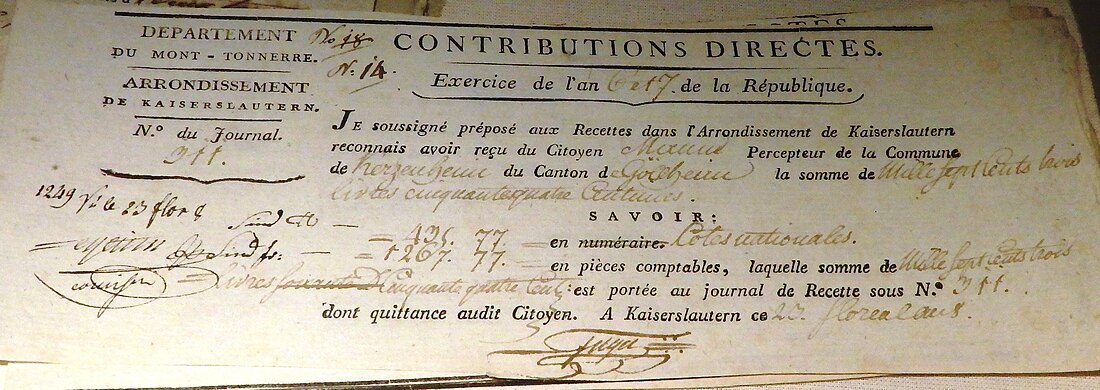 DEPARTEMENT
DU MONT-TONNERRE.
ARRONDISSEMENT
DE KAISERSLAUTERN.
N.º du Journal.
911.
No. 18
N. 14.
CONTRIBUTIONS DIRECTES.
Exercice de l'an 6 et 7 de la République.
JE soussigné préposé aux Recettes dans l'Arrondissement de Kaiserslautern
reconnais avoir reçu du Citoyen Percepteur de la Commune
de du Canton de la somme de Mille sept cents trois
livres cinquante quatre centimes.
SAVOIR:
1249 23 flor 8
435. 77. en numéraire. Cotes nationales.
1267. 77. en pièces comptables, laquelle somme de Mille sept cents trois
livres Cinquante quatre Cent: est portée au journal de Recette sous N.º 911.
dont quittance audit Citoyen. A Kaiserslautern ce 23 floreal an 8.